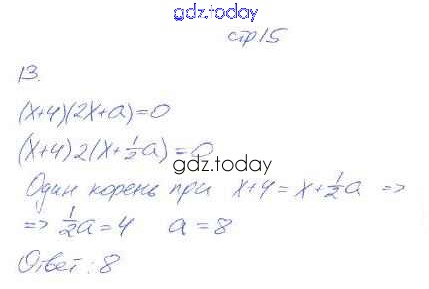 gdz.today
стр15
13.
(x+4)(2x+a)=0
(x+4)2(x+½a)=0
gdz.today
Один корень при x+4=x+½a =>
=> ½a=4 a=8
Ответ: 8